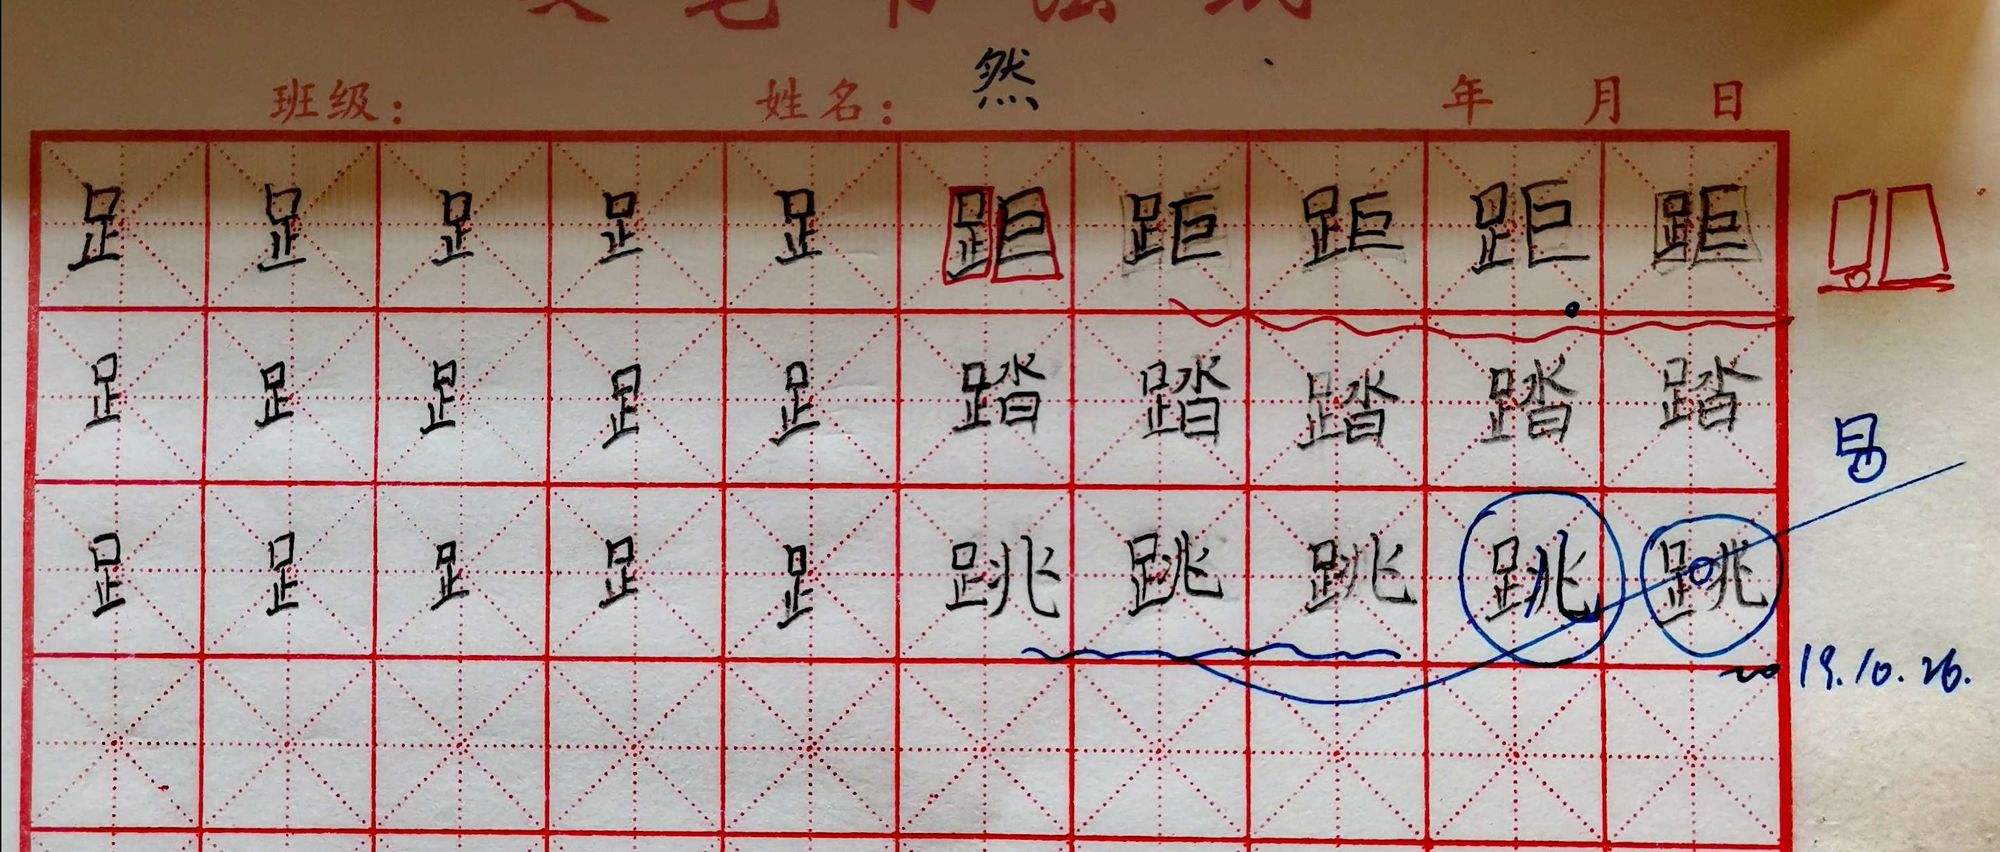 然
班级： 姓名： 年 月 日
𧾷 𧾷 𧾷 𧾷 𧾷 距 距 距 距 距
𧾷 𧾷 𧾷 𧾷 𧾷 踏 踏 踏 踏 踏
𧾷 𧾷 𧾷 𧾷 𧾷 跳 跳 跳 跳 跳
19.10.26.